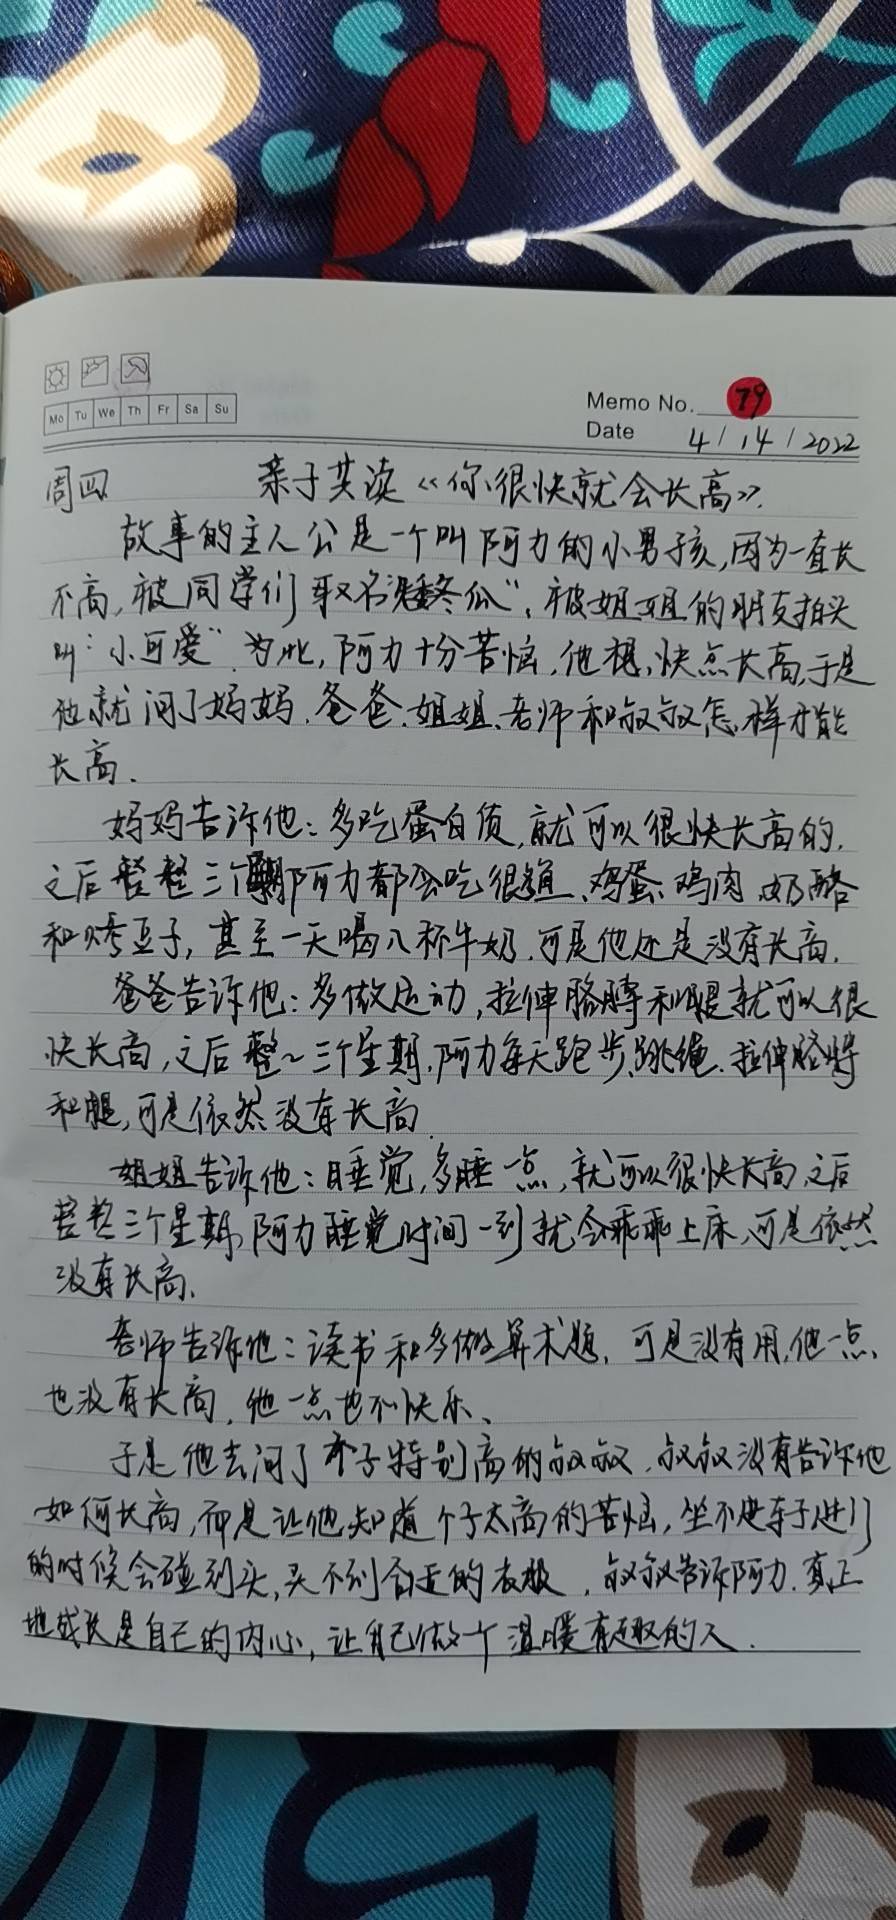 Mo Tu We Th Fr Sa Su
Memo No. 79
Date 4/14/2022
周四 亲子共读《你很快就会长高》.
故事的主人公是一个叫阿力的小男孩,因为一直长
不高,被同学们取名"矮冬瓜",被姐姐的朋友拍头
叫"小可爱".为此,阿力十分苦恼,他想快点长高,于是
他就问了妈妈、爸爸、姐姐、老师和叔叔怎样才能
长高.
妈妈告诉他:多吃蛋白质,就可以很快长高的,
之后整整三个星期阿力都会吃很多鱼、鸡蛋、鸡肉、奶酪
和烤豆子,甚至一天喝八杯牛奶.可是他还是没有长高.
爸爸告诉他:多做运动,拉伸胳膊和腿就可以很
快长高,之后整~三个星期,阿力每天跑步、跳绳、拉伸胳膊
和腿,可是依然没有长高.
姐姐告诉他:睡觉,多睡一点,就可以很快长高,之后
整整三个星期,阿力睡觉时间一到就会乖乖上床,可是依然
没有长高.
老师告诉他:读书和多做算术题,可是没有用,他一点
也没有长高,他一点也不快乐、
于是他去问了个子特别高的叔叔,叔叔没有告诉他
如何长高,而是让他知道个子太高的苦恼,坐不进车子,进门
的时候会碰到头,买不到合适的衣服,叔叔告诉阿力,真正
地成长是自己的内心,让自己做一个温暖有趣的人.